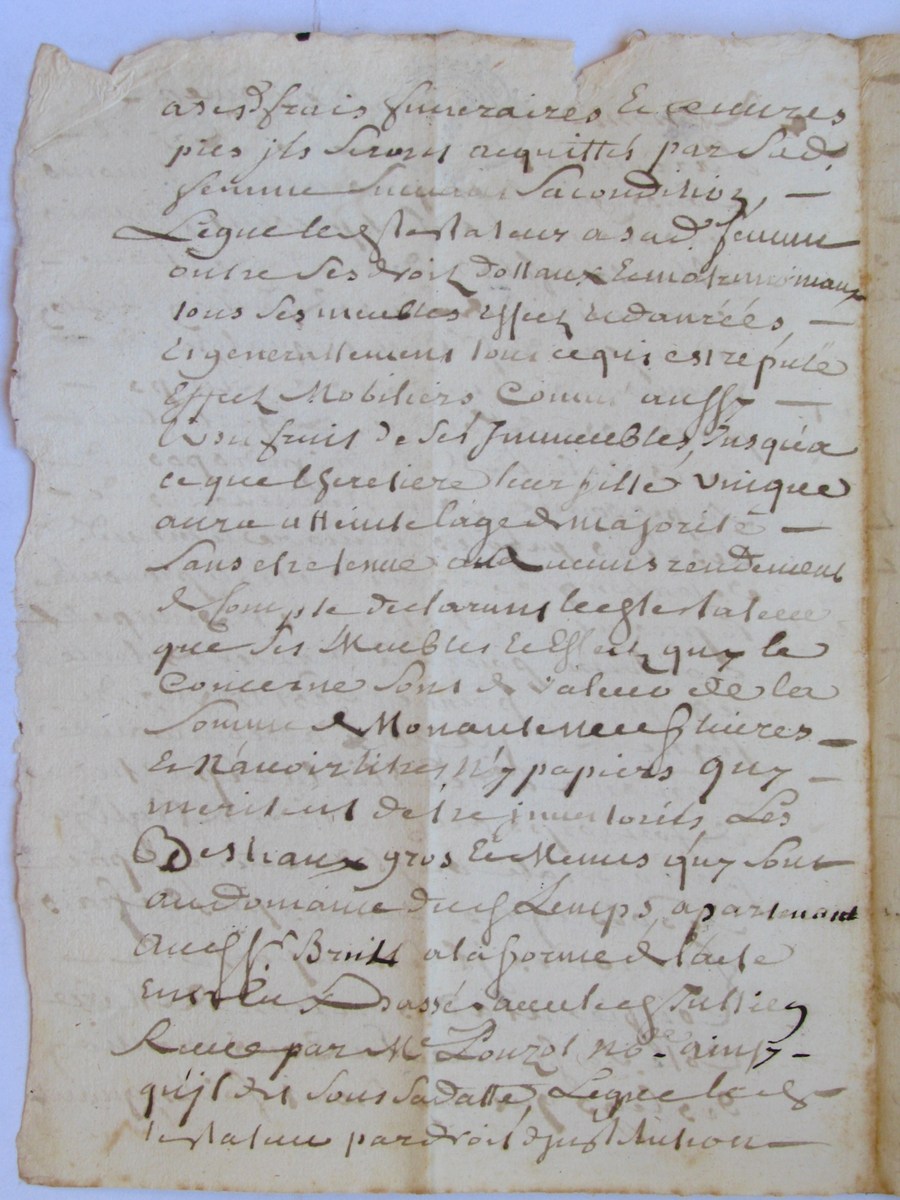 a sesd. frais funeraires Et oeuvres
pies jls seront acquittés par sad.
femme suivant sa condition, —
Legue led. testateur a sad. femme
outre ses droit dottaux Et matrimoniaux
tous ses meubles Effect Et danrées, —
Et generallement tout ce qui est reputé
Effect Mobiliers Comme aussy —
L'usufruit de ses Jmmeubles, Jusqu'a
ce que l'heretiere leur fille Unique
aura atteint l'age de majorité —
Sans etre tenue a aucuns rendement
de Compte declarant led. testateur
que ses Meubles Et Effect quy le
Concerne sont de valeur de la
somme de nonante neuf livres —
Et N'avoir titres n'y papiers quy —
meritent detre jnventoriés Les
Bestiaux gros Et Menus quy sont
au domaine dud. Lemps, apartenant
aud. Sr. Bruit a la forme de l'acte
Entr'eu Passé avec led. Jullien
Reçue par Me. Louzot nore. ainsy —
qu'jl dit sous sa datte, Legue led.
testateur par droit d'institution —